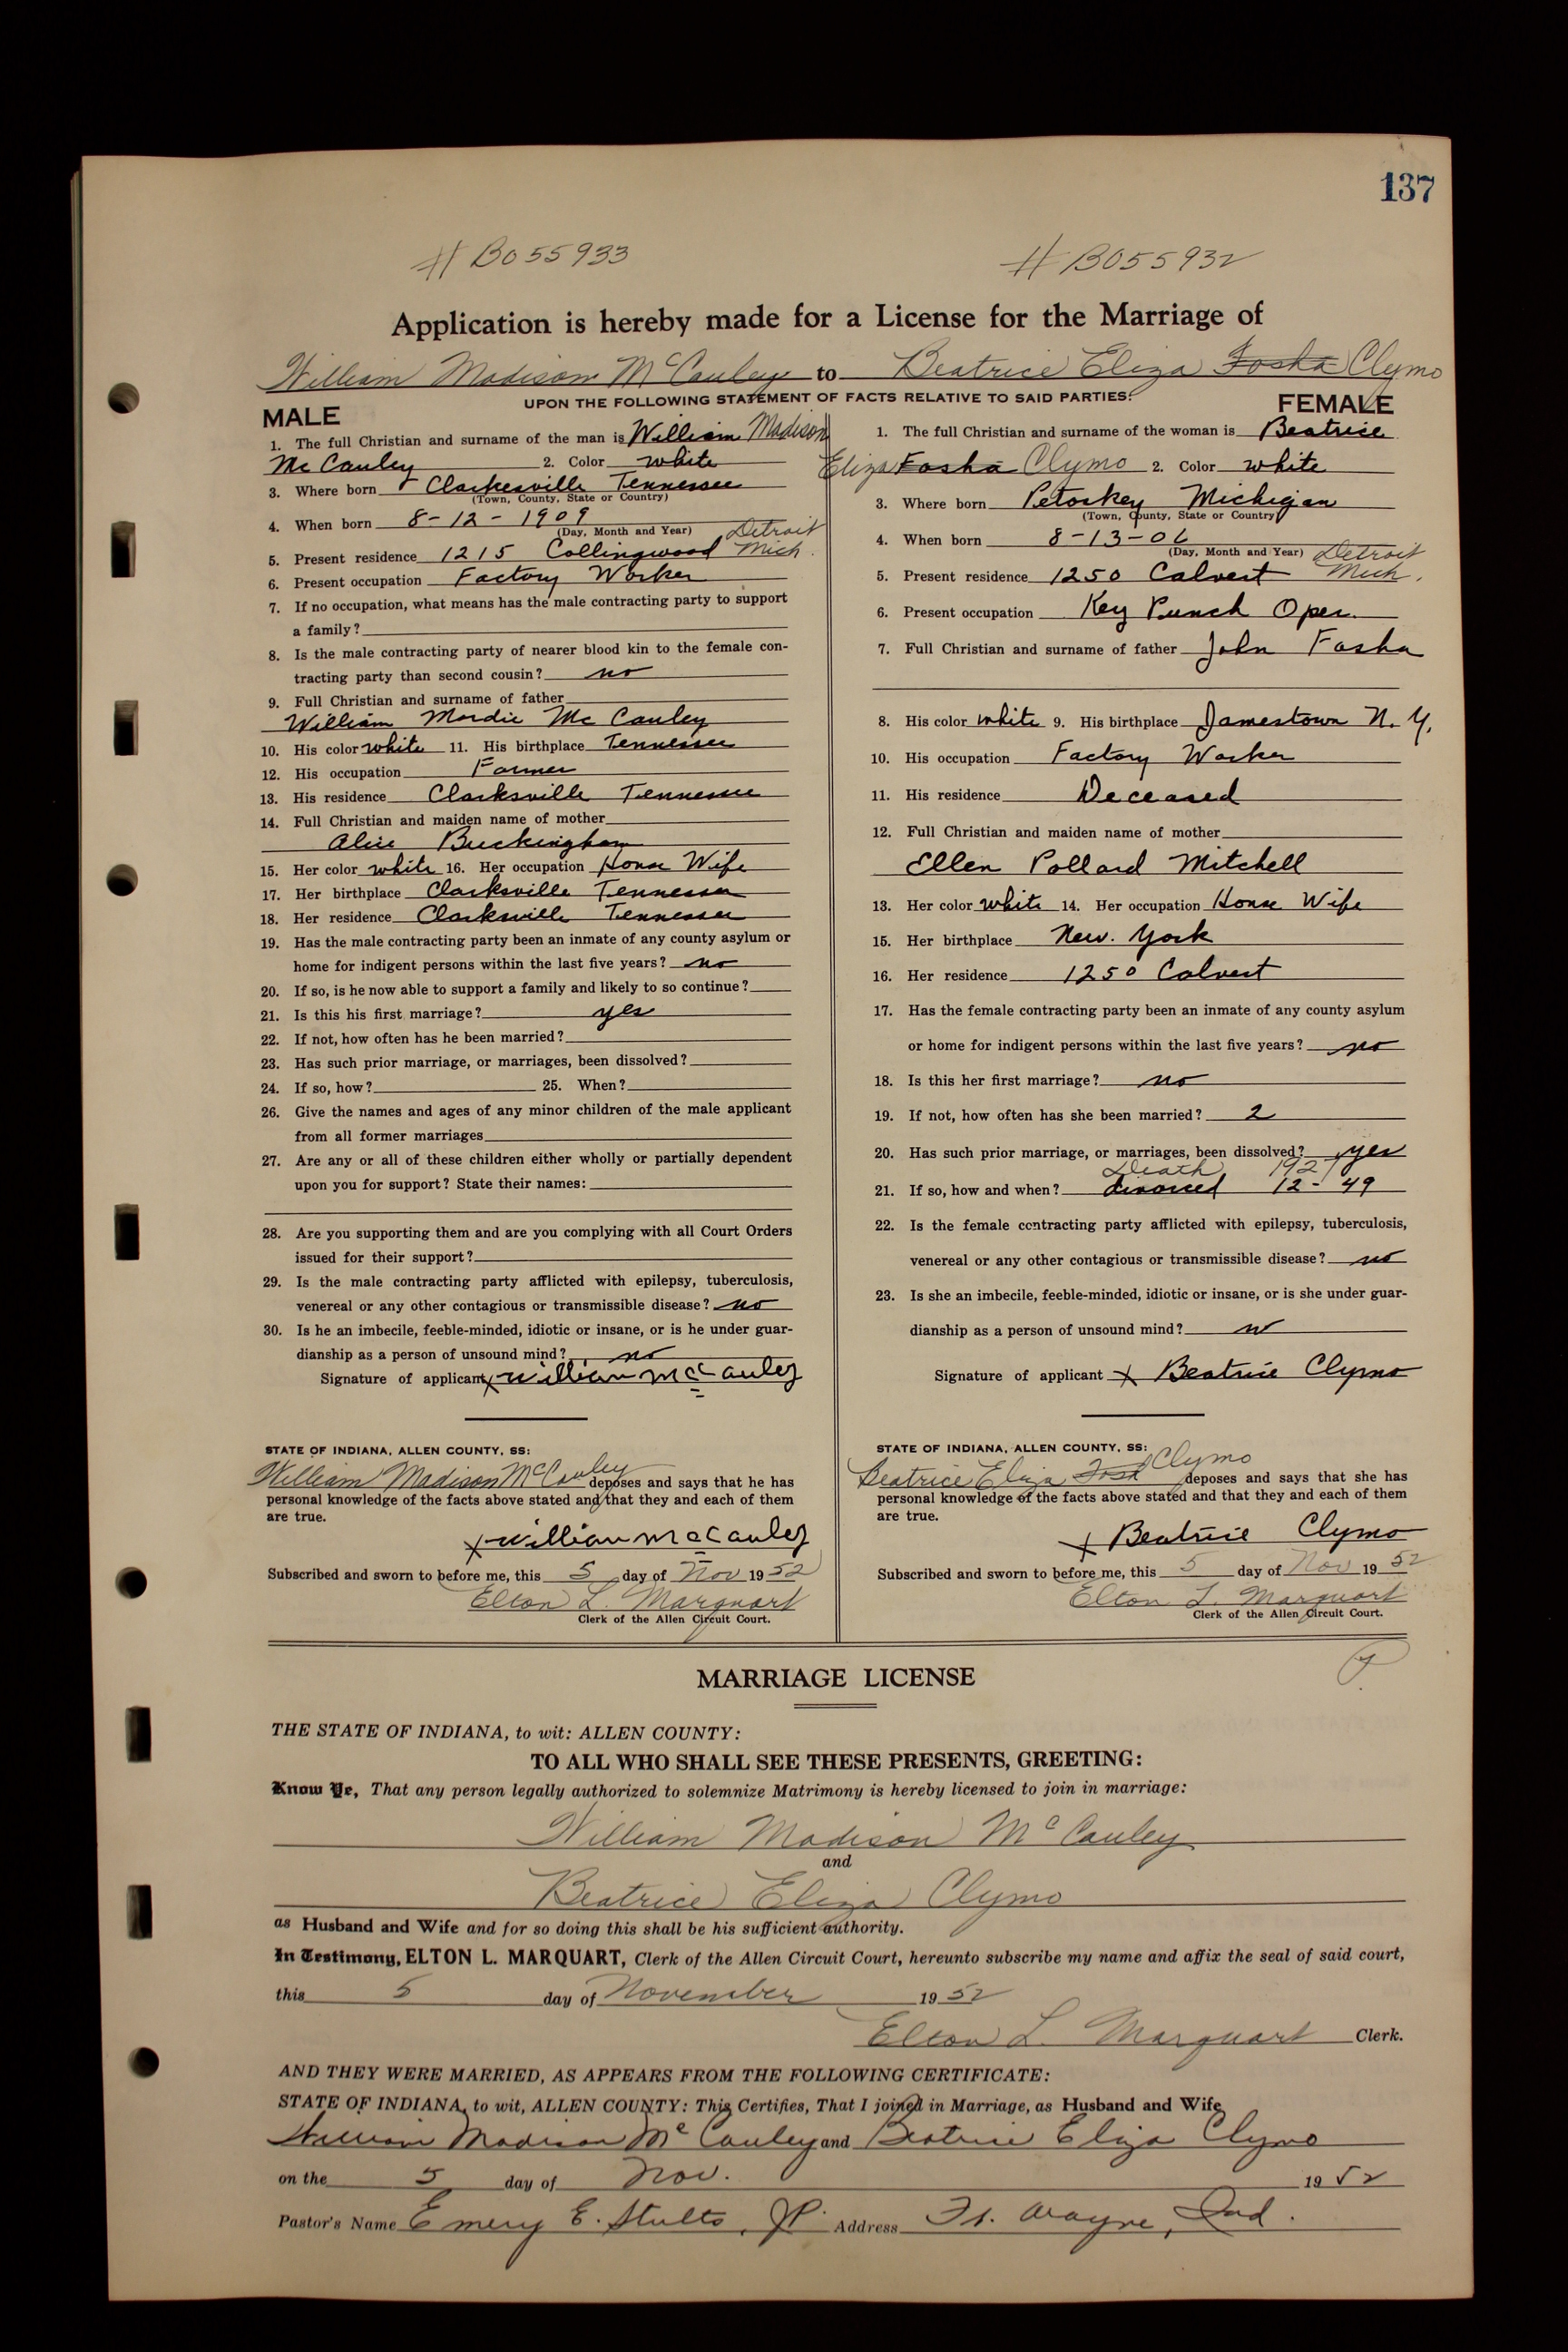 137
# B055933
# B055932
Application is hereby made for a License for the Marriage of
William Madison McCauley to Beatrice Eliza Fosha Clymo
UPON THE FOLLOWING STATEMENT OF FACTS RELATIVE TO SAID PARTIES:
MALE
1. The full Christian and surname of the man is William Madison
McCauley 2. Color white
3. Where born Clarkesville Tennessee
(Town, County, State or Country)
4. When born 8-12-1909
(Day, Month and Year) Detroit
5. Present residence 1215 Collingwood Mich.
6. Present occupation Factory Worker
7. If no occupation, what means has the male contracting party to support
a family?
8. Is the male contracting party of nearer blood kin to the female con-
tracting party than second cousin? no
9. Full Christian and surname of father
William Mordie McCauley
10. His color white 11. His birthplace Tennessee
12. His occupation Farmer
13. His residence Clarksville Tennessee
14. Full Christian and maiden name of mother
Alice Buckingham
15. Her color white 16. Her occupation House Wife
17. Her birthplace Clarksville Tennessee
18. Her residence Clarksville Tennessee
19. Has the male contracting party been an inmate of any county asylum or
home for indigent persons within the last five years? no
20. If so, is he now able to support a family and likely to so continue?
21. Is this his first marriage? yes
22. If not, how often has he been married?
23. Has such prior marriage, or marriages, been dissolved?
24. If so, how? 25. When?
26. Give the names and ages of any minor children of the male applicant
from all former marriages
27. Are any or all of these children either wholly or partially dependent
upon you for support? State their names:
28. Are you supporting them and are you complying with all Court Orders
issued for their support?
29. Is the male contracting party afflicted with epilepsy, tuberculosis,
venereal or any other contagious or transmissible disease? no
30. Is he an imbecile, feeble-minded, idiotic or insane, or is he under guar-
dianship as a person of unsound mind? no
Signature of applicant x William McCauley
STATE OF INDIANA, ALLEN COUNTY, SS:
William Madison McCauley deposes and says that he has
personal knowledge of the facts above stated and that they and each of them
are true.
x William McCauley
Subscribed and sworn to before me, this 5 day of Nov 1952
Elton L. Marquart
Clerk of the Allen Circuit Court.
FEMALE
1. The full Christian and surname of the woman is Beatrice
Eliza Fosha Clymo 2. Color white
3. Where born Petoskey Michigan
(Town, County, State or Country)
4. When born 8-13-06
(Day, Month and Year) Detroit
5. Present residence 1250 Calvert Mich.
6. Present occupation Key Punch Oper.
7. Full Christian and surname of father John Fosha
8. His color white 9. His birthplace Jamestown N.Y.
10. His occupation Factory Worker
11. His residence Deceased
12. Full Christian and maiden name of mother
Ellen Pollard Mitchell
13. Her color white 14. Her occupation House Wife
15. Her birthplace New. York
16. Her residence 1250 Calvert
17. Has the female contracting party been an inmate of any county asylum
or home for indigent persons within the last five years? no
18. Is this her first marriage? no
19. If not, how often has she been married? 2
20. Has such prior marriage, or marriages, been dissolved? yes
Death 1927
21. If so, how and when? divorced 12-49
22. Is the female contracting party afflicted with epilepsy, tuberculosis,
venereal or any other contagious or transmissible disease? no
23. Is she an imbecile, feeble-minded, idiotic or insane, or is she under guar-
dianship as a person of unsound mind? no
Signature of applicant x Beatrice Clymo
STATE OF INDIANA, ALLEN COUNTY, SS:
Beatrice Eliza Fosh Clymo deposes and says that she has
personal knowledge of the facts above stated and that they and each of them
are true.
x Beatrice Clymo
Subscribed and sworn to before me, this 5 day of Nov 1952
Elton L. Marquart
Clerk of the Allen Circuit Court.
MARRIAGE LICENSE
THE STATE OF INDIANA, to wit: ALLEN COUNTY:
TO ALL WHO SHALL SEE THESE PRESENTS, GREETING:
Know Ye, That any person legally authorized to solemnize Matrimony is hereby licensed to join in marriage:
William Madison McCauley
and
Beatrice Eliza Clymo
as Husband and Wife and for so doing this shall be his sufficient authority.
In Testimony, ELTON L. MARQUART, Clerk of the Allen Circuit Court, hereunto subscribe my name and affix the seal of said court,
this 5 day of November 1952
Elton L. Marquart Clerk.
AND THEY WERE MARRIED, AS APPEARS FROM THE FOLLOWING CERTIFICATE:
STATE OF INDIANA, to wit, ALLEN COUNTY: This Certifies, That I joined in Marriage, as Husband and Wife
William Madison McCauley and Beatrice Eliza Clymo
on the 5 day of Nov. 1952
Pastor's Name Emery E. Stults, JP. Address Ft. Wayne, Ind.